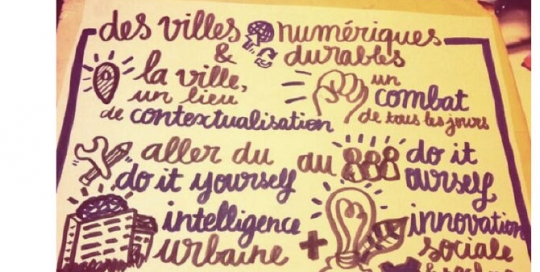 des villes numériques
& durables
la ville,
un lieu
de contextualisation
un
combat
de tous les jours
aller du
do it yourself
au do it
ourself
intelligence
urbaine +
innovation
sociale